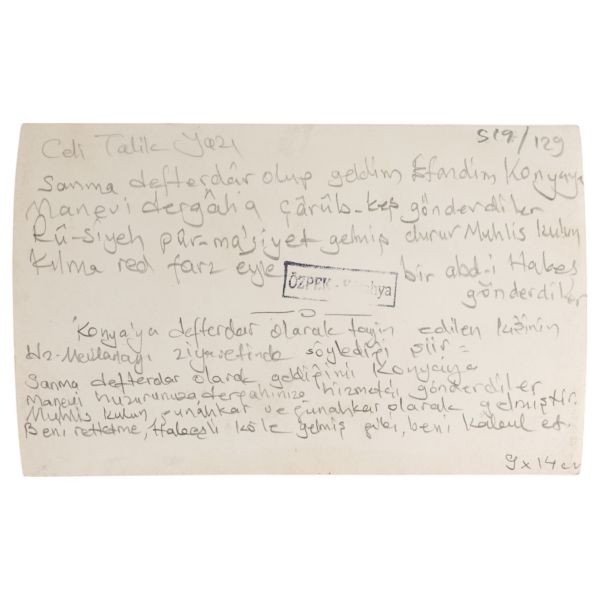 Celi Talik Yazı
519/129
Sanma defterdâr olup geldim Efendim Konyaya
Manevi dergâhıa çârûb-keş gönderdiler
Rû-siyeh pür-ma'siyet gelmiş durur Muhlis kulun
Kılma red farz eyle bir abd-i Habeş
gönderdiler
ÖZPEK - Kütahya
Konya'ya defterdar olarak tayin edilen kişinin
Hz-Mevlanayı ziyaretinde söylediği şiir =
Sanma defterdar olarak geldiğimi Konyaya
Manevi huzurunuza dergahınıza hizmetci gönderdiler
Muhlis kulun günahkar ve günahkar olarak gelmiştir.
Beni retletme, Habeşli köle gelmiş gibi, beni kabul et.
9 x 14 cm